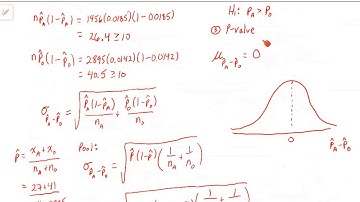 n p̂_A(1-p̂_A) = 1956(0.0185)(1-0.0185)
= 26.4 ≥ 10
n p̂_O(1-p̂_O) = 2895(0.0142)(1-0.0142)
= 40.5 ≥ 10
σ_{p̂_A-p̂_O} = √(p̂_A(1-p̂_A)/n_A + p̂_O(1-p̂_O)/n_O)
Pool:
p̂ = (x_A+x_O)/(n_A+n_O)
σ_{p̂_A-p̂_O} = √(p̂(1-p̂)(1/n_A + 1/n_O))
= 27+41
H₁: P_A > P_O
③ P-value
μ_{p̂_A-p̂_O} = 0
0
p̂_A-p̂_O